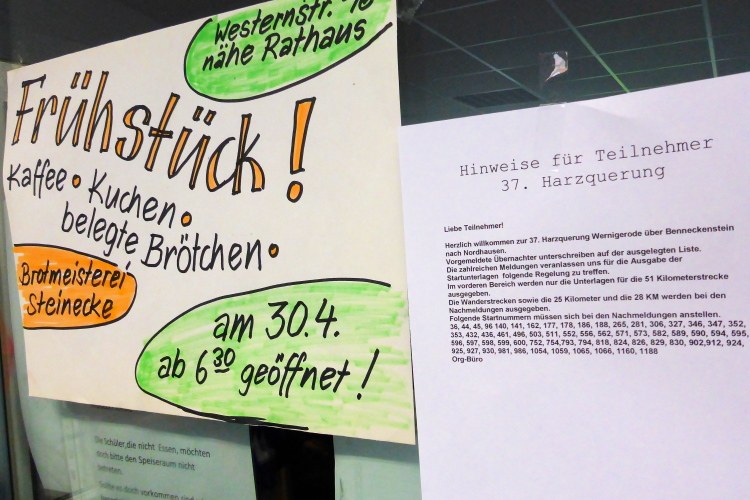 Westernstr.
nähe Rathaus
Frühstück!
Kaffee • Kuchen •
belegte Brötchen •
Brotmeisterei
Steinecke
am 30.4.
ab 6 30 geöffnet!
Hinweise für Teilnehmer
37. Harzquerung
Liebe Teilnehmer!
Herzlich willkommen zur 37. Harzquerung Wernigerode über Benneckenstein
nach Nordhausen.
Vorgemeldete Übernachter unterschreiben auf der ausgelegten Liste.
Die zahlreichen Meldungen veranlassen uns für die Ausgabe der
Startunterlagen folgende Regelung zu treffen.
Im vorderen Bereich werden nur die Unterlagen für die 51 Kilometerstrecke
ausgegeben.
Die Wanderstrecken sowie die 25 Kilometer und die 28 KM werden bei den
Nachmeldungen ausgegeben.
Folgende Startnummern müssen sich bei den Nachmeldungen anstellen.
36, 44, 45, 96 140, 141, 162, 177, 178, 186, 188, 265, 281, 306, 327, 346, 347, 352,
353, 432, 436, 461, 496, 503, 511, 552, 556, 562, 571, 573, 582, 589, 590, 594, 595,
596, 597, 598, 599, 600, 752, 754,793, 794, 818, 824, 826, 829, 830, 902,912, 924,
925, 927, 930, 981, 986, 1054, 1059, 1065, 1066, 1160, 1188
Org-Büro
Die Schüler,die nicht Essen, möchten
doch bitte den Speiseraum nicht
betreten.